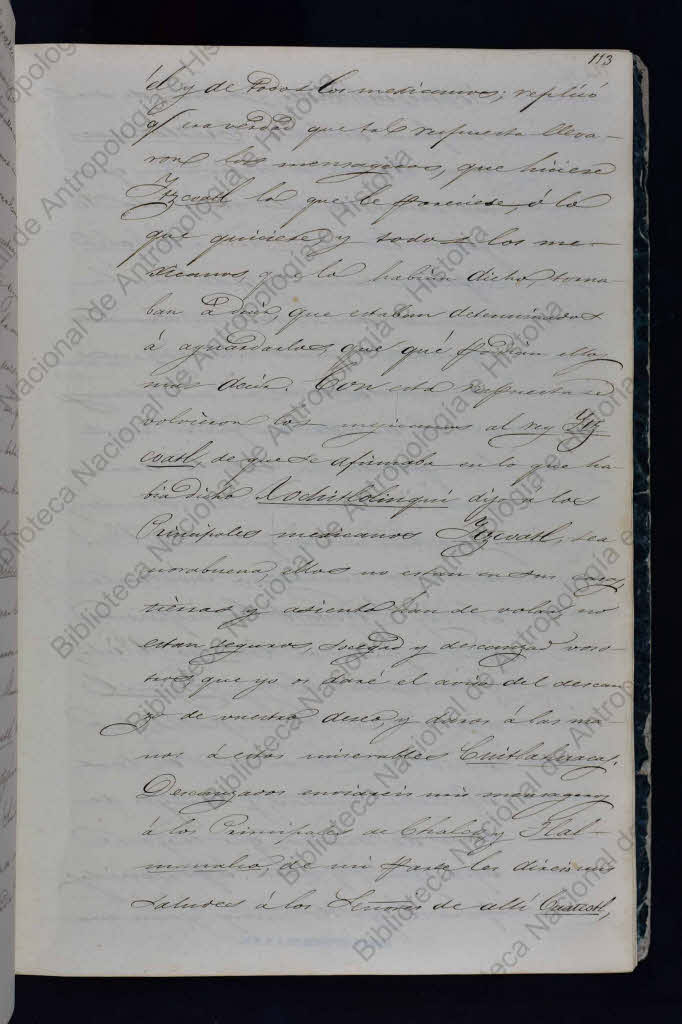 113
él y de todos los mexicanos; replicó
q/ era verdad que tal respuesta lleva-
ron los mensageros, que hiciese
Ytzcoatl lo que le pareciese, ó lo
que quiciese, y todos los me-
xicanos que lo habían dicho, torna-
ban á decir, que estaban determinados
á aguardarlos, que qué podian ellos
mas decir. Con esta respuesta se
volvieron los mexicanos al rey Ytz
coatl, de que se afirmaba en lo que ha-
bia dicho Xochitlolinqui dijo á los
Principales mexicanos Ytzcoatl, sea
norabuena, ellos no estan en sus casas,
tierras y asiento han de volar, no
estan seguros, sosegad y descanzad voso
tros, que yo os daré el aviso del descan
zo de vuestro deseo, y daros á las ma-
nos á estos miserables Cuitlahuacas.
Descanzados enviareis mis mensageros
á los Principales de Chalco y Tlal-
manalco, de mi parte les direis mis
saludes á los Señores de allí Cuateotl,
Biblioteca Nacional de Antropología e Historia